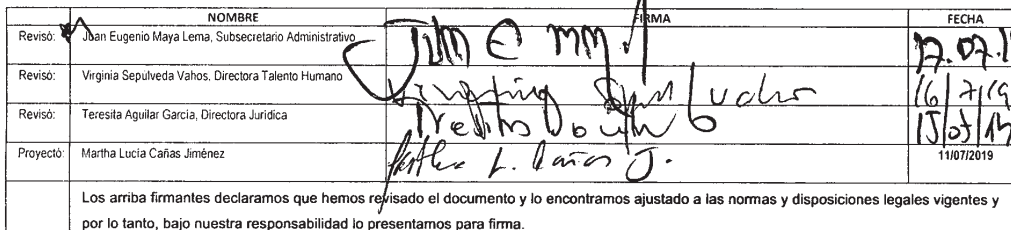 NOMBRE FIRMA FECHA
Revisó: Juan Eugenio Maya Lema, Subsecretario Administrativo 17.07.1
Revisó: Virginia Sepúlveda Vahos, Directora Talento Humano 16/7/19
Revisó: Teresita Aguilar García, Directora Jurídica
Proyectó: Martha Lucía Cañas Jiménez Martha L. Cañas J. 11/07/2019
Los arriba firmantes declaramos que hemos revisado el documento y lo encontramos ajustado a las normas y disposiciones legales vigentes y
por lo tanto, bajo nuestra responsabilidad lo presentamos para firma.